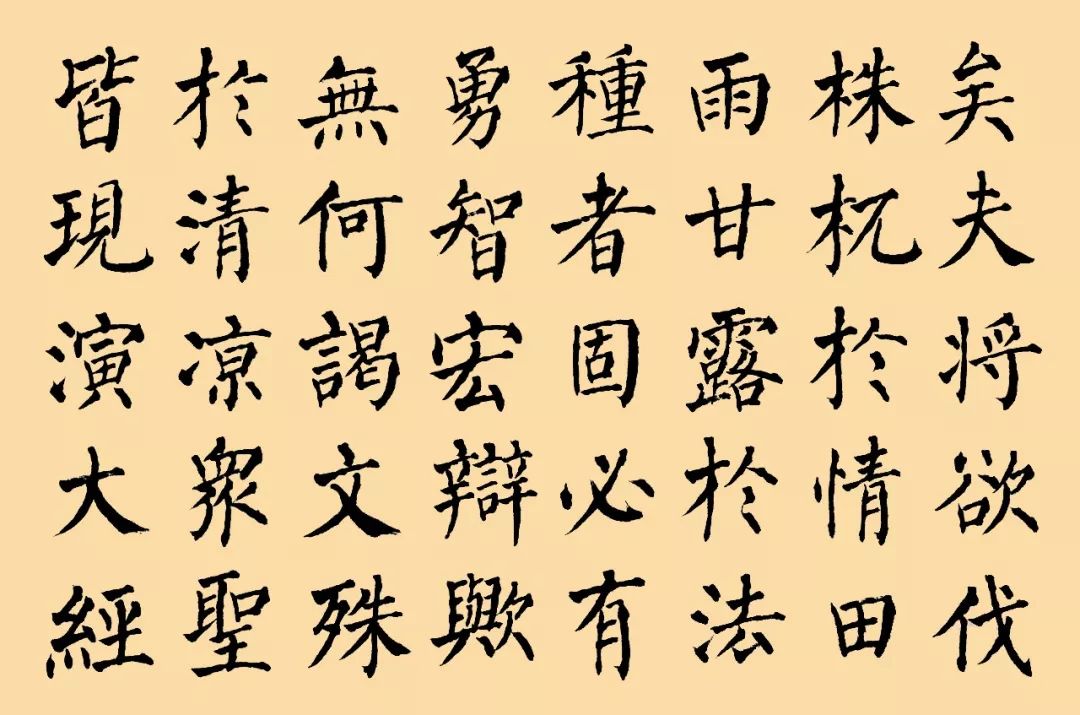 矣夫将欲伐
株杌於情田
雨甘露於法
種者固必有
勇智宏辯歟
無何謁文殊
於清凉衆聖
皆現演大經